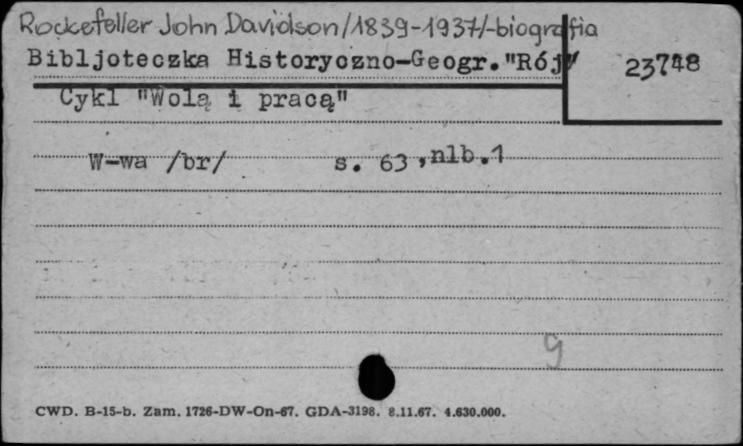 Rockefeller John Davidson/1839-1937/-biografia
Bibljoteczka Historyczno-Geogr."Rój"
23748
Cykl "Wolą i pracą"
W-wa /br/ s. 63,nlb.1
9
CWD. B-15-b. Zam. 1726-DW-On-67. GDA-3198. 8.11.67. 4.630.000.